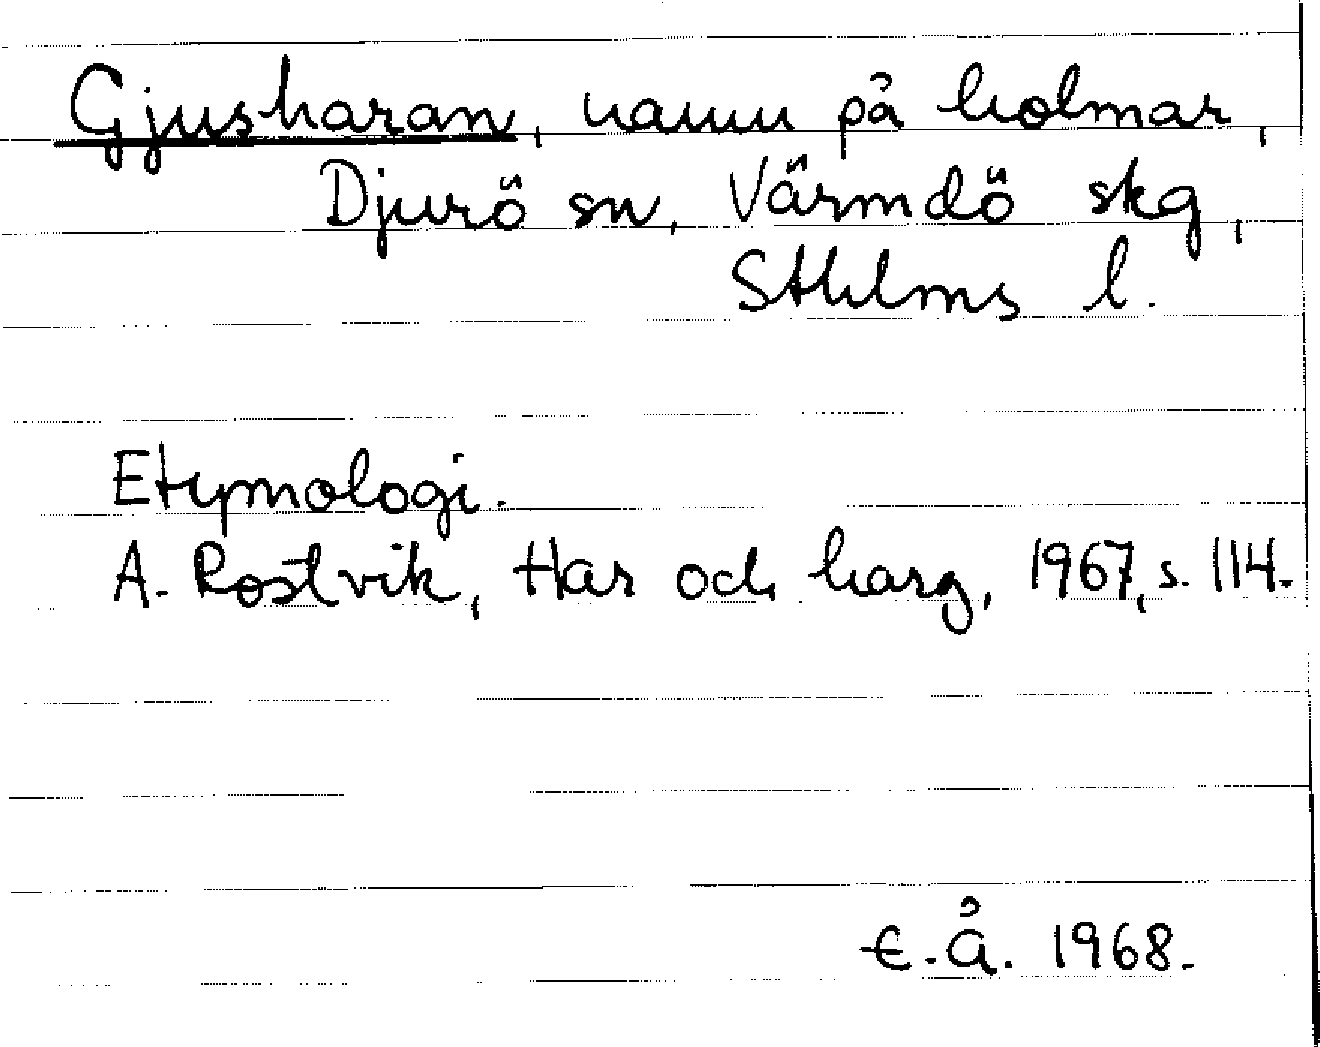 Gjusharan, namn på holmar,
Djurö sn, Värmdö skg,
Sthlms l.
Etymologi.
A. Rostvik, Har och harg, 1967, s. 114.
E.Å. 1968.